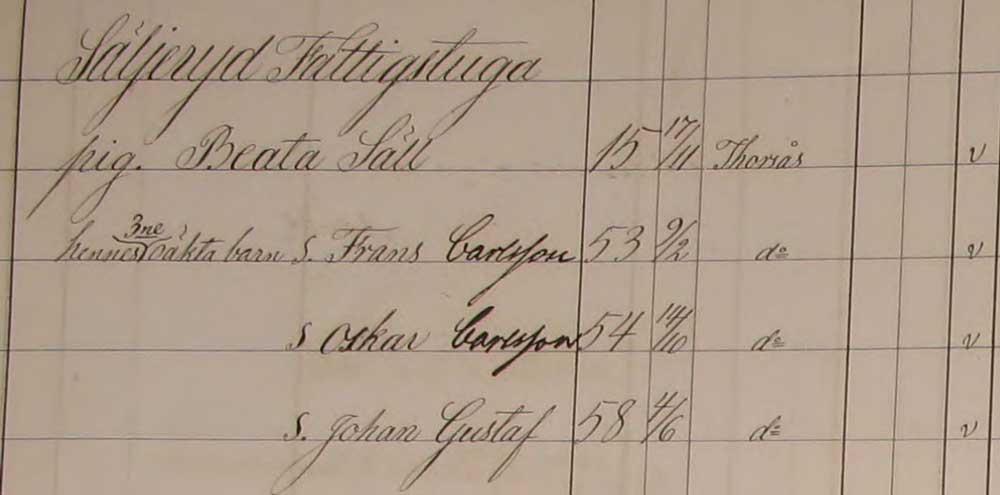 Säljeryd Fattigstuga
pig. Beata Säll 15 17/11 Thorsås v
hennes 3ne oäkta barn s. Frans Carlsson 53 9/2 do v
s Oskar Carlsson 54 14/10 do v
s. Johan Gustaf 58 4/6 do v